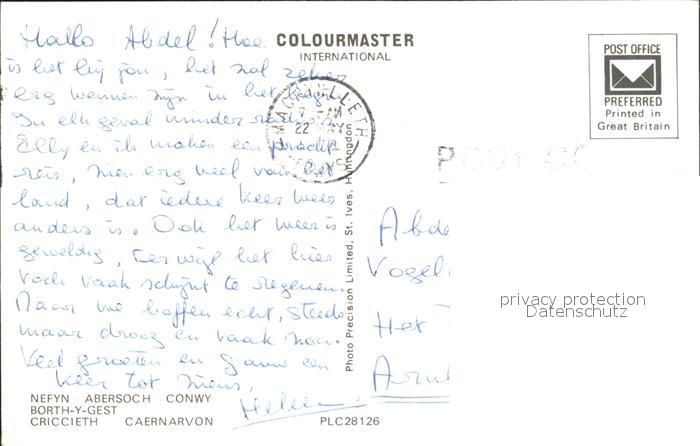 Hallo Abdel! Hoe
is het bij jou, het zal zeker
erg wennen zijn in het begin.
In elk geval minder
Elly en ik maken een
reis, zien erg veel van het
land, dat iedere keer weer
anders is. Ook het weer is
geweldig, terwijl het hier
toch vaak schijnt te regenen.
Maar we boffen echt, steeds
maar droog en vaak zon.
Veel groeten en gauw een
keer tot ziens,
Heleen.
NEFYN ABERSOCH CONWY
BORTH-Y-GEST
CRICCIETH CAERNARVON
COLOURMASTER
INTERNATIONAL
MACHYNLLETH
7 - AM
22 MAY
POWYS
Photo Precision Limited, St. Ives, Huntingdon
PLC28126
POST OFFICE
PREFERRED
Printed in
Great Britain
POST
Abde
Vogel
Het
privacy protection
Datenschutz